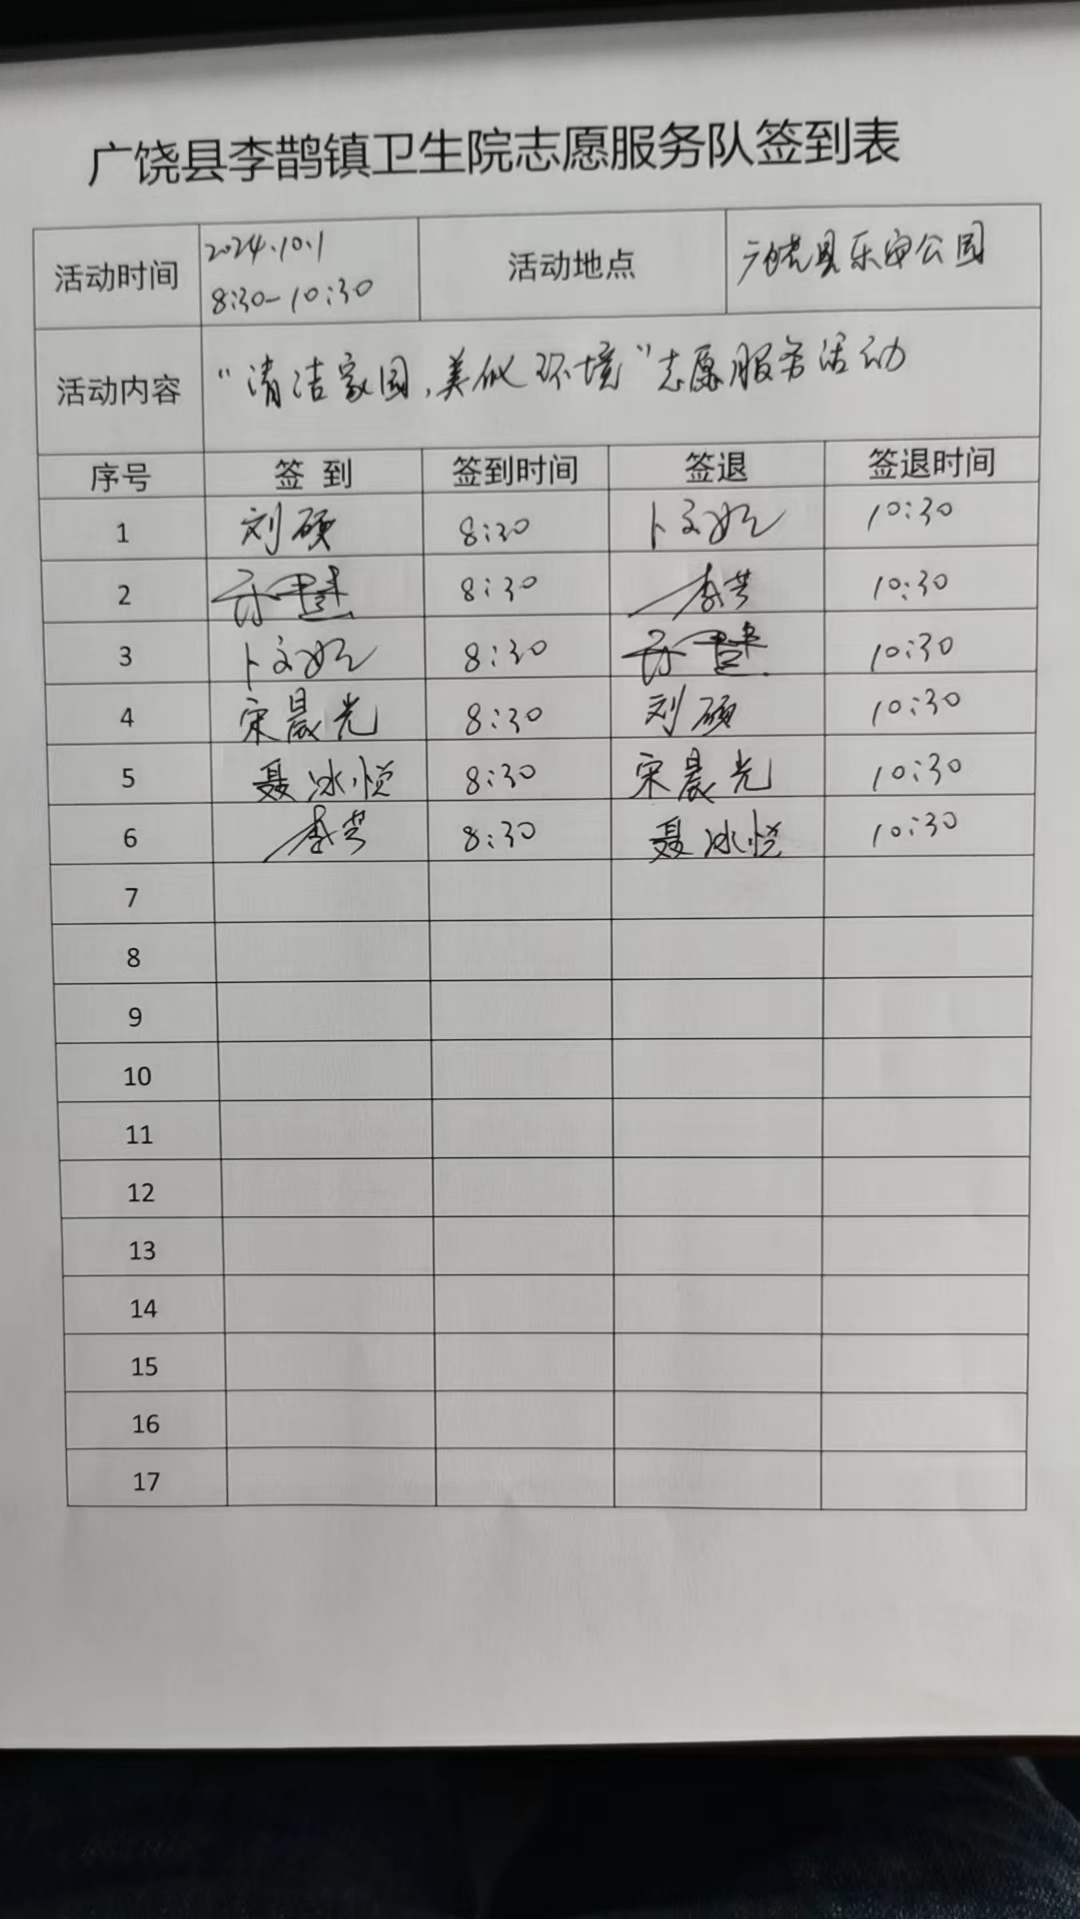 广饶县李鹊镇卫生院志愿服务队签到表
活动时间 2024.10.1 8:30-10:30 活动地点 广饶县乐安公园
活动内容 “清洁家园,美化环境”志愿服务活动
序号 签到 签到时间 签退 签退时间
1 刘硕 8:30 卜文 10:30
2 8:30 李芸 10:30
3 卜文 8:30 10:30
4 宋晨光 8:30 刘硕 10:30
5 聂冰悦 8:30 宋晨光 10:30
6 李芸 8:30 聂冰悦 10:30
7
8
9
10
11
12
13
14
15
16
17